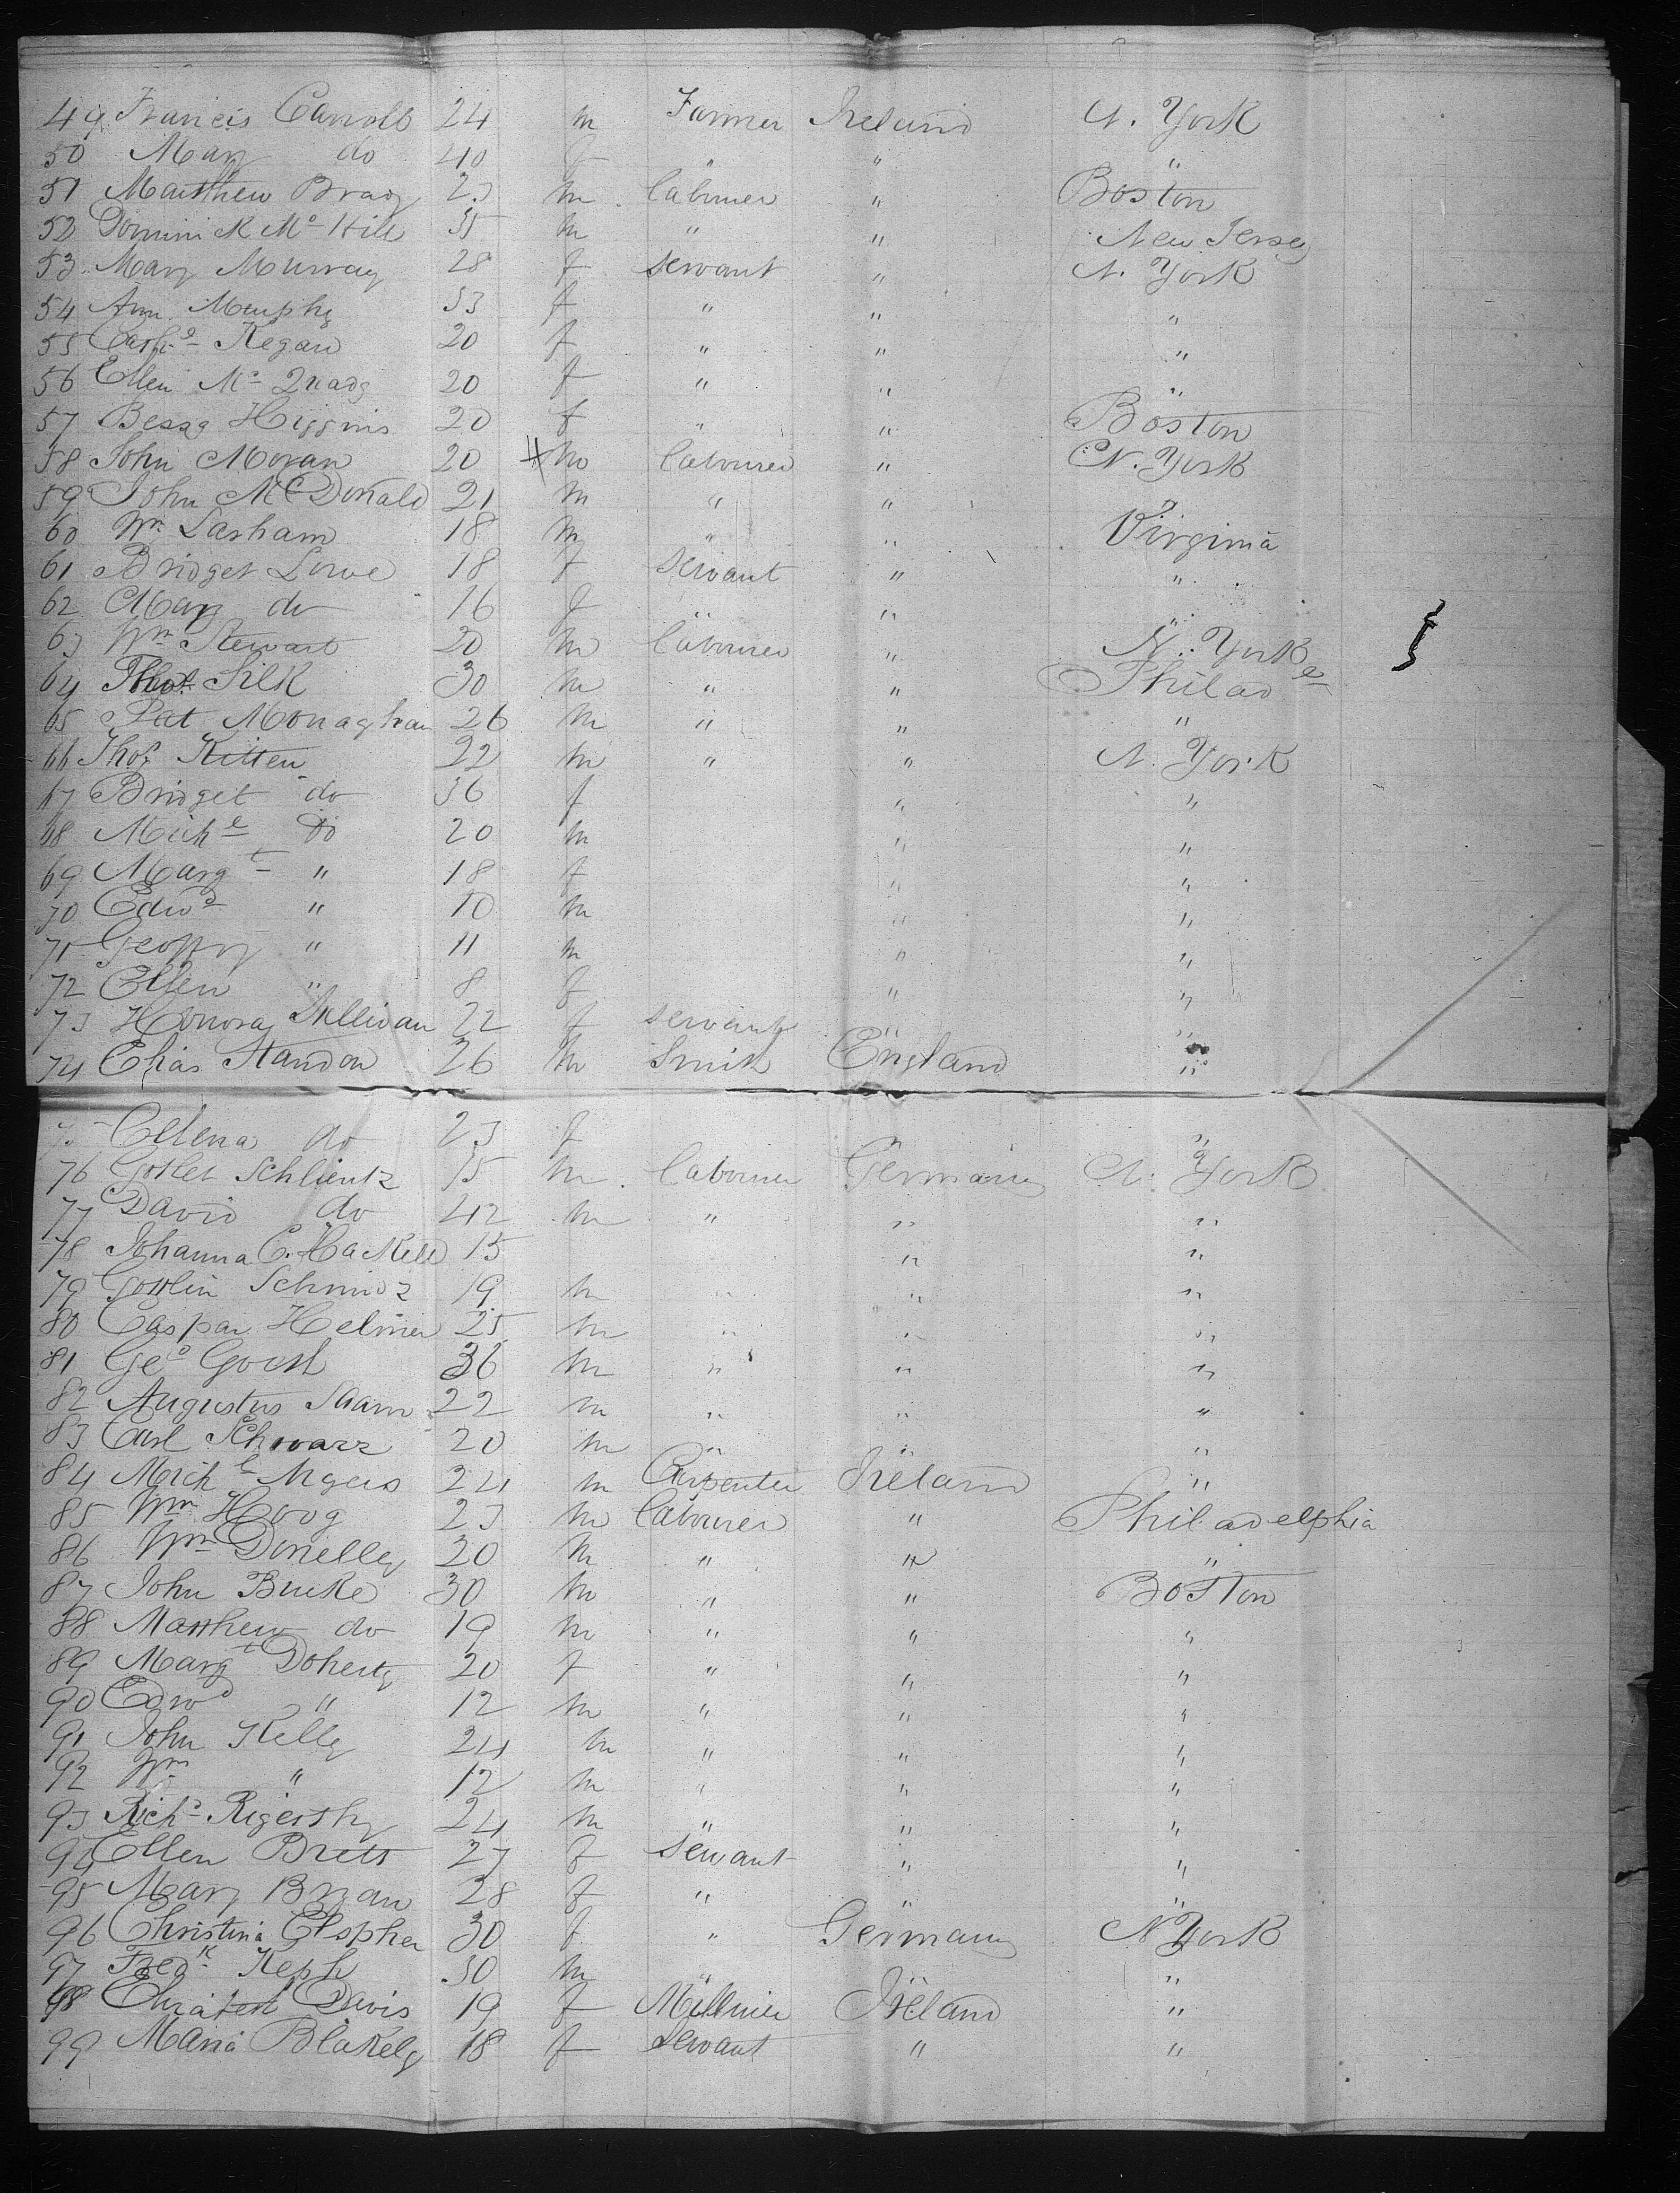 49 Francis Carroll 24 m Farmer Ireland N. York
50 Mary do 40 f " " "
51 Matthew Brady 23 m labourer " Boston
52 Dominick Mc Hill 35 m " " New Jersey
53 Mary Murray 28 f servant " N. York
54 Ann Murphy 53 f " " "
55 Cathe Regan 20 f " " "
56 Ellen Mc Quady 20 f " " "
57 Bessy Higgins 20 f " " Boston
58 John Moran 20 m labourer " N. York
59 John McDonald 21 m " " "
60 Wm Lasham 18 m " " Virginia
61 Bridget Lowe 18 f servant " "
62 Mary do 16 f " " "
63 Wm Stewart 20 m labourer " N. York
64 Thos Silk 30 m " " Philade
65 Pat Monaghan 26 m " " "
66 Thos Kitten 22 m " " N. York
67 Bridget do 36 f " "
68 Michl do 20 m " "
69 Margt " 18 f " "
70 Edwd " 10 m " "
71 Geoffry " 11 m " "
72 Ellen " 8 f " "
73 Honora Sullivan 22 f servant " "
74 Elias Standon 26 m Smith England "
75 Ellena do 23 f "
76 Gotlet Schlientz 15 m labourer Germany N. York
77 David do 42 m " " "
78 Johanna C. Hackell 15 " "
79 Gottlin Schmidz 19 m " " "
80 Caspar Helmer 25 m " " "
81 Geo Goost 36 m " " "
82 Augustus Saam 22 m " " "
83 Carl Schwarz 20 m " " "
84 Michl Myers 24 m Carpenter Ireland "
85 Wm Hoog 23 m labourer " Philadelphia
86 Wm Donelley 20 m " " "
87 John Burke 30 m " " Boston
88 Matthew do 19 m " " "
89 Margt Doherty 20 f " " "
90 Edwd " 12 m " " "
91 John Kelly 24 m " " "
92 Wm " 12 m " " "
93 Richd 24 m " " "
94 Ellen Brett 27 f servant " "
95 Mary Bryan 28 f " " "
96 Christina 30 f " Germany N York
97 Fredk Keph 30 m " " "
98 Davis 19 f Milliner Ireland "
99 Maria Blakely 18 f servant " "